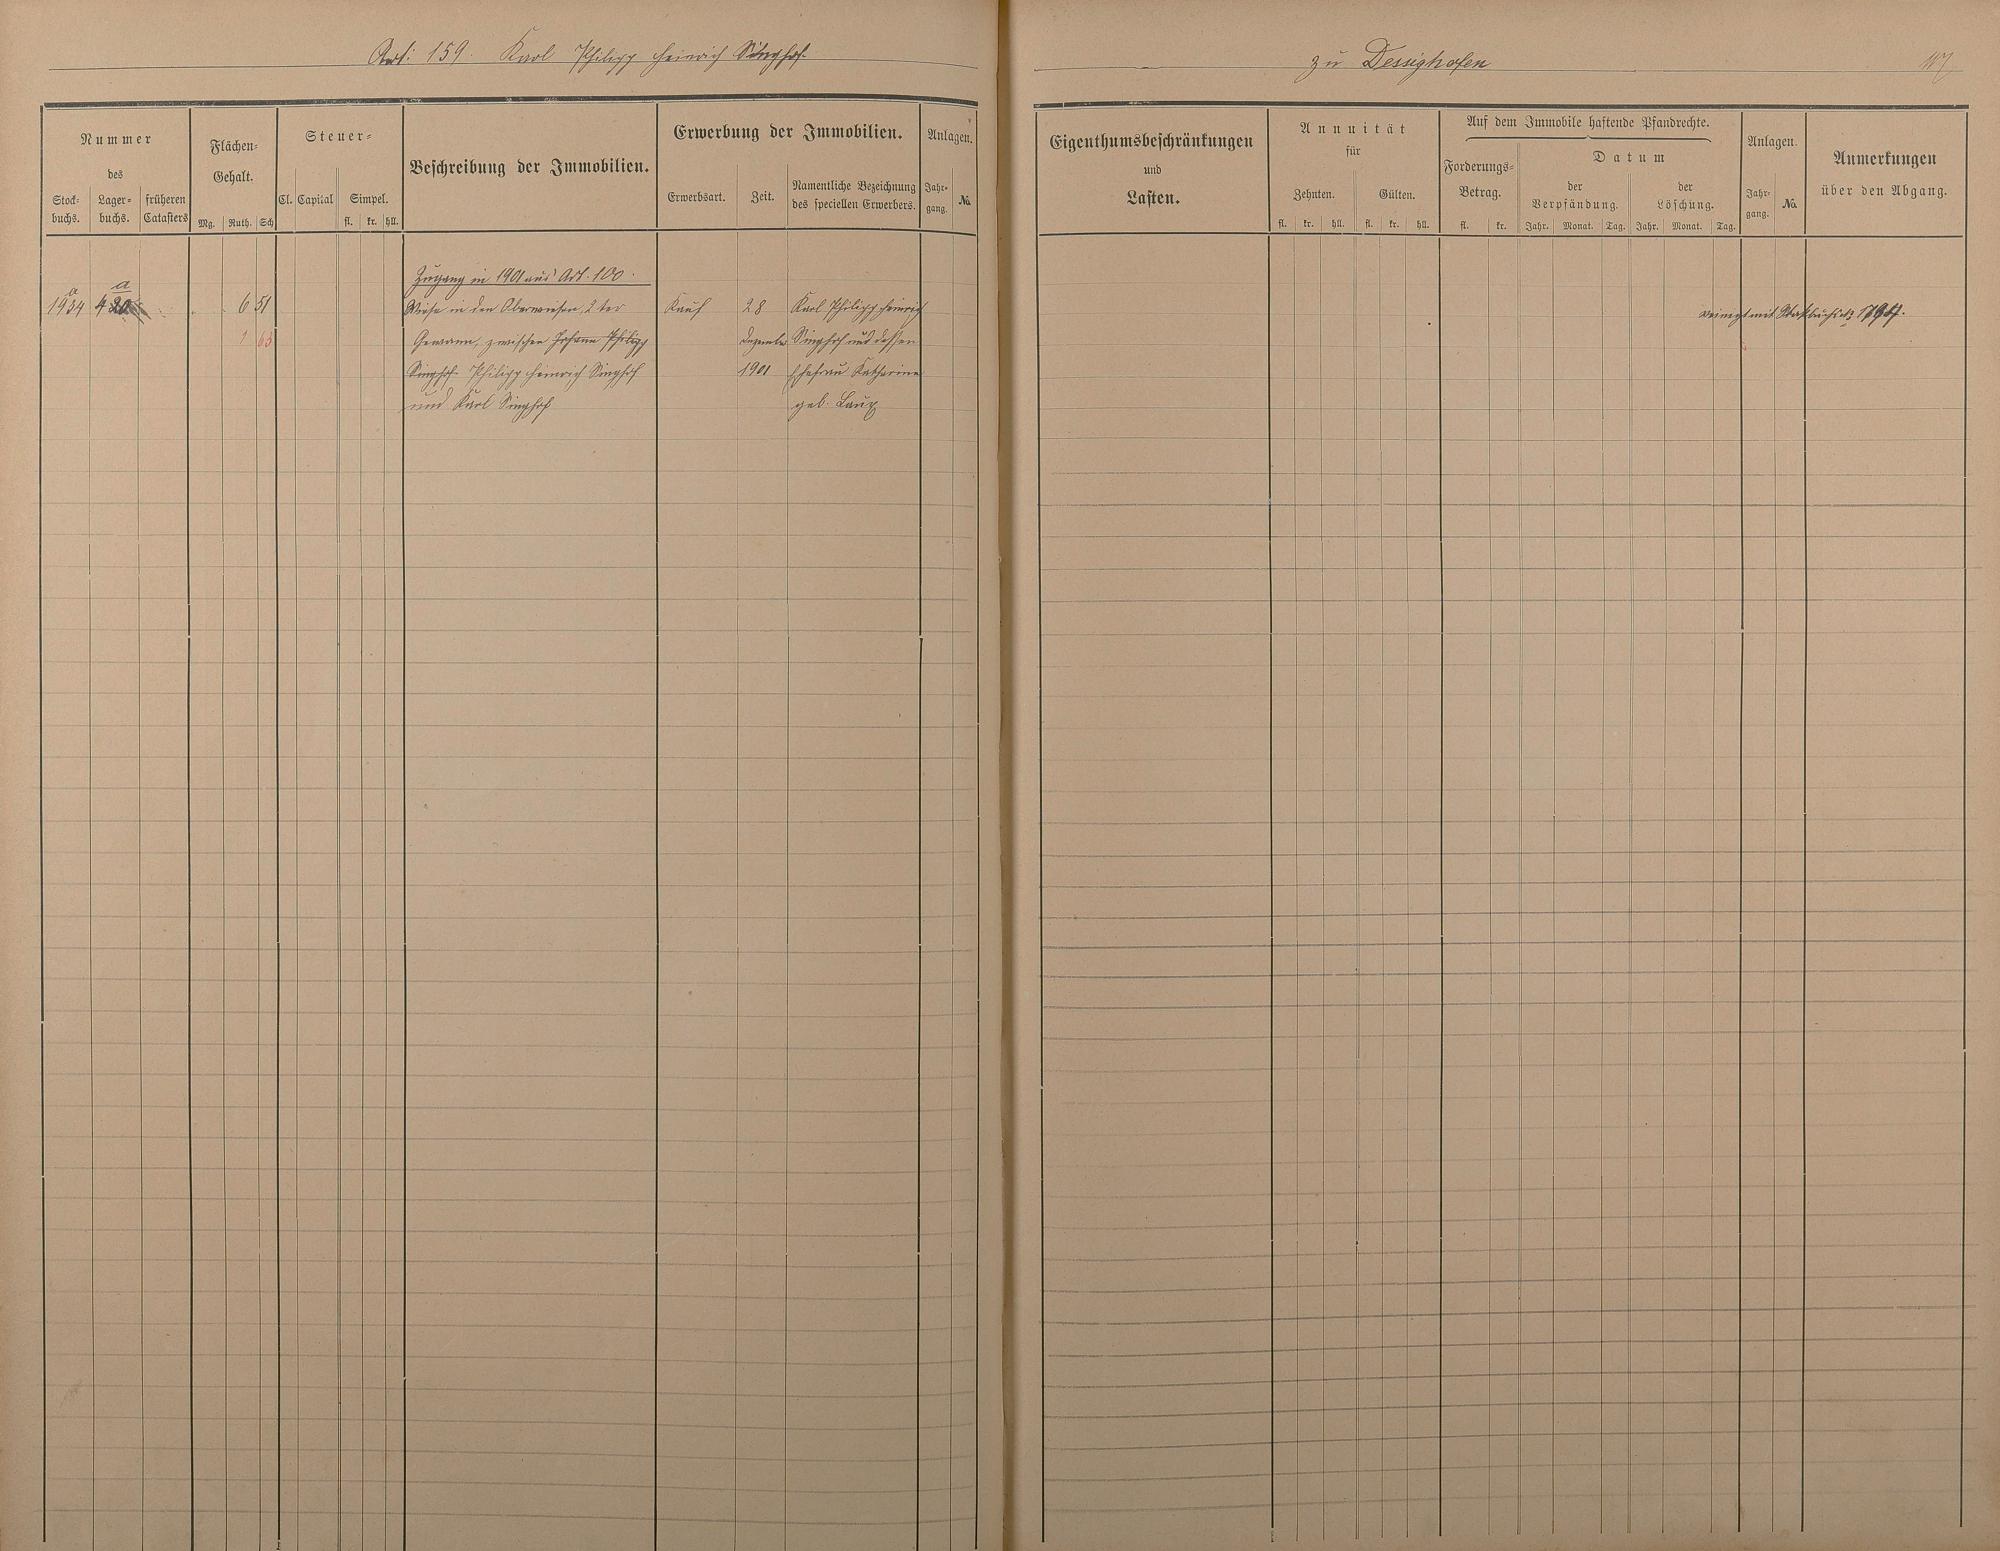 Art: 159. Karl Philipp Heinrich Singhof
zu Dessighofen
Nummer
des
Stock-
buchs.
Lager-
buchs.
früheren
Catasters
Flächen-
Gehalt.
Mg. Ruth. Sch
Steuer-
Cl. Capital Simpel.
fl. kr. hll.
Beschreibung der Immobilien.
Erwerbung der Immobilien.
Erwerbsart. Zeit.
Namentliche Bezeichnung
des speciellen Erwerbers.
Anlagen.
Jahr-
gang.
No.
Eigenthumsbeschränkungen
und
Lasten.
Annuität
für
Zehnten. Gülten.
fl. kr. hll. fl. kr. hll.
Auf dem Immobile haftende Pfandrechte.
Forderungs-
Betrag.
fl. kr.
Datum
der
Verpfändung.
Jahr. Monat. Tag.
der
Löschung.
Jahr. Monat. Tag.
Anlagen.
Jahr-
gang.
No.
Anmerkungen
über den Abgang.
Zugang in 1901 aus Art. 100.
a a
1934 6 51 Wiese in den Oberwiesen, 2 ter Kauf 28 Karl Philipp Heinrich
1 63 Gewann, zwischen Johann Philipp Dezember Singhof und dessen
Singhof Philipp Heinrich Singhof 1901 Ehefrau Katharine
und Karl Singhof geb. Laux